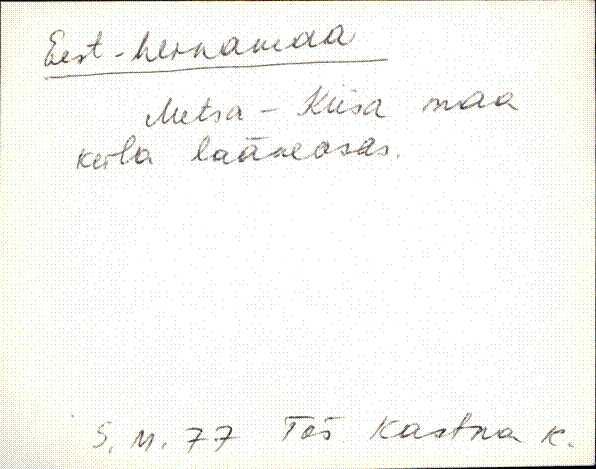 Eest-hernamaa
Metsa - Kiisa maa
keila lääneosas.
S. M. 77 Tõš Kastna K.